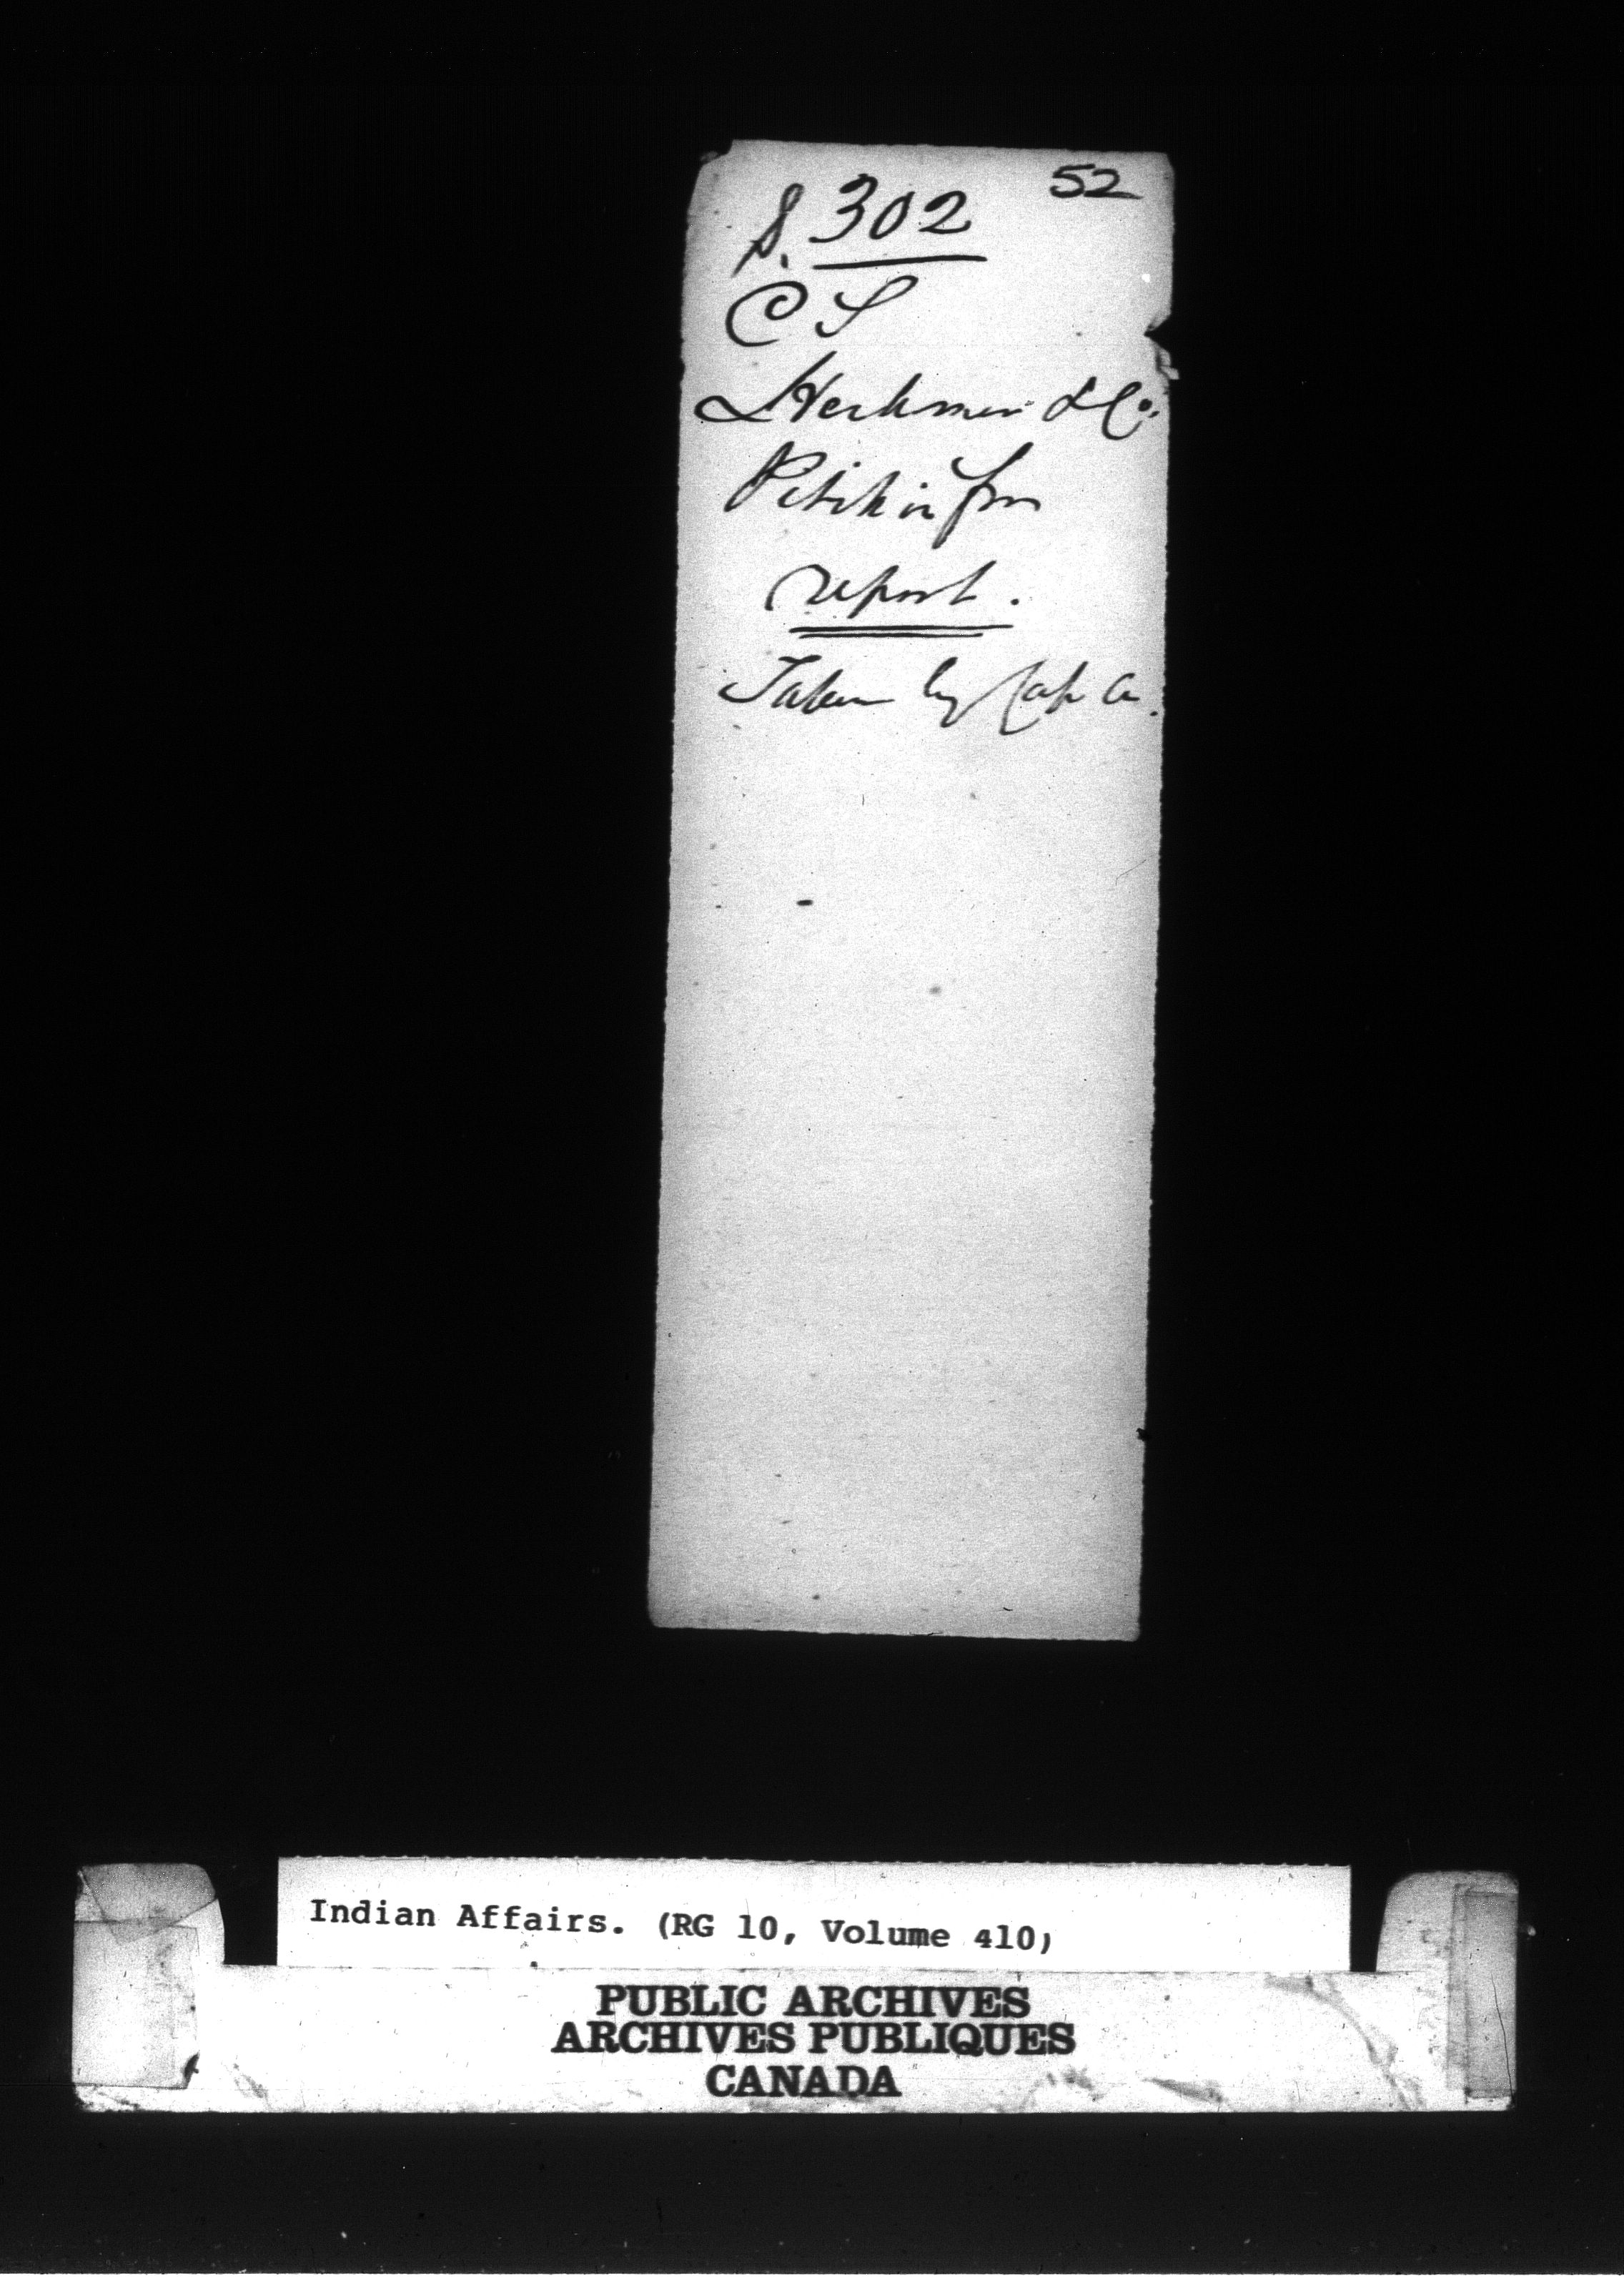 52
S. 302
C S
Herkmer & Co.
Petition for
report.
Taken by Cap A.
Indian Affairs. (RG 10, Volume 410)
PUBLIC ARCHIVES
ARCHIVES PUBLIQUES
CANADA